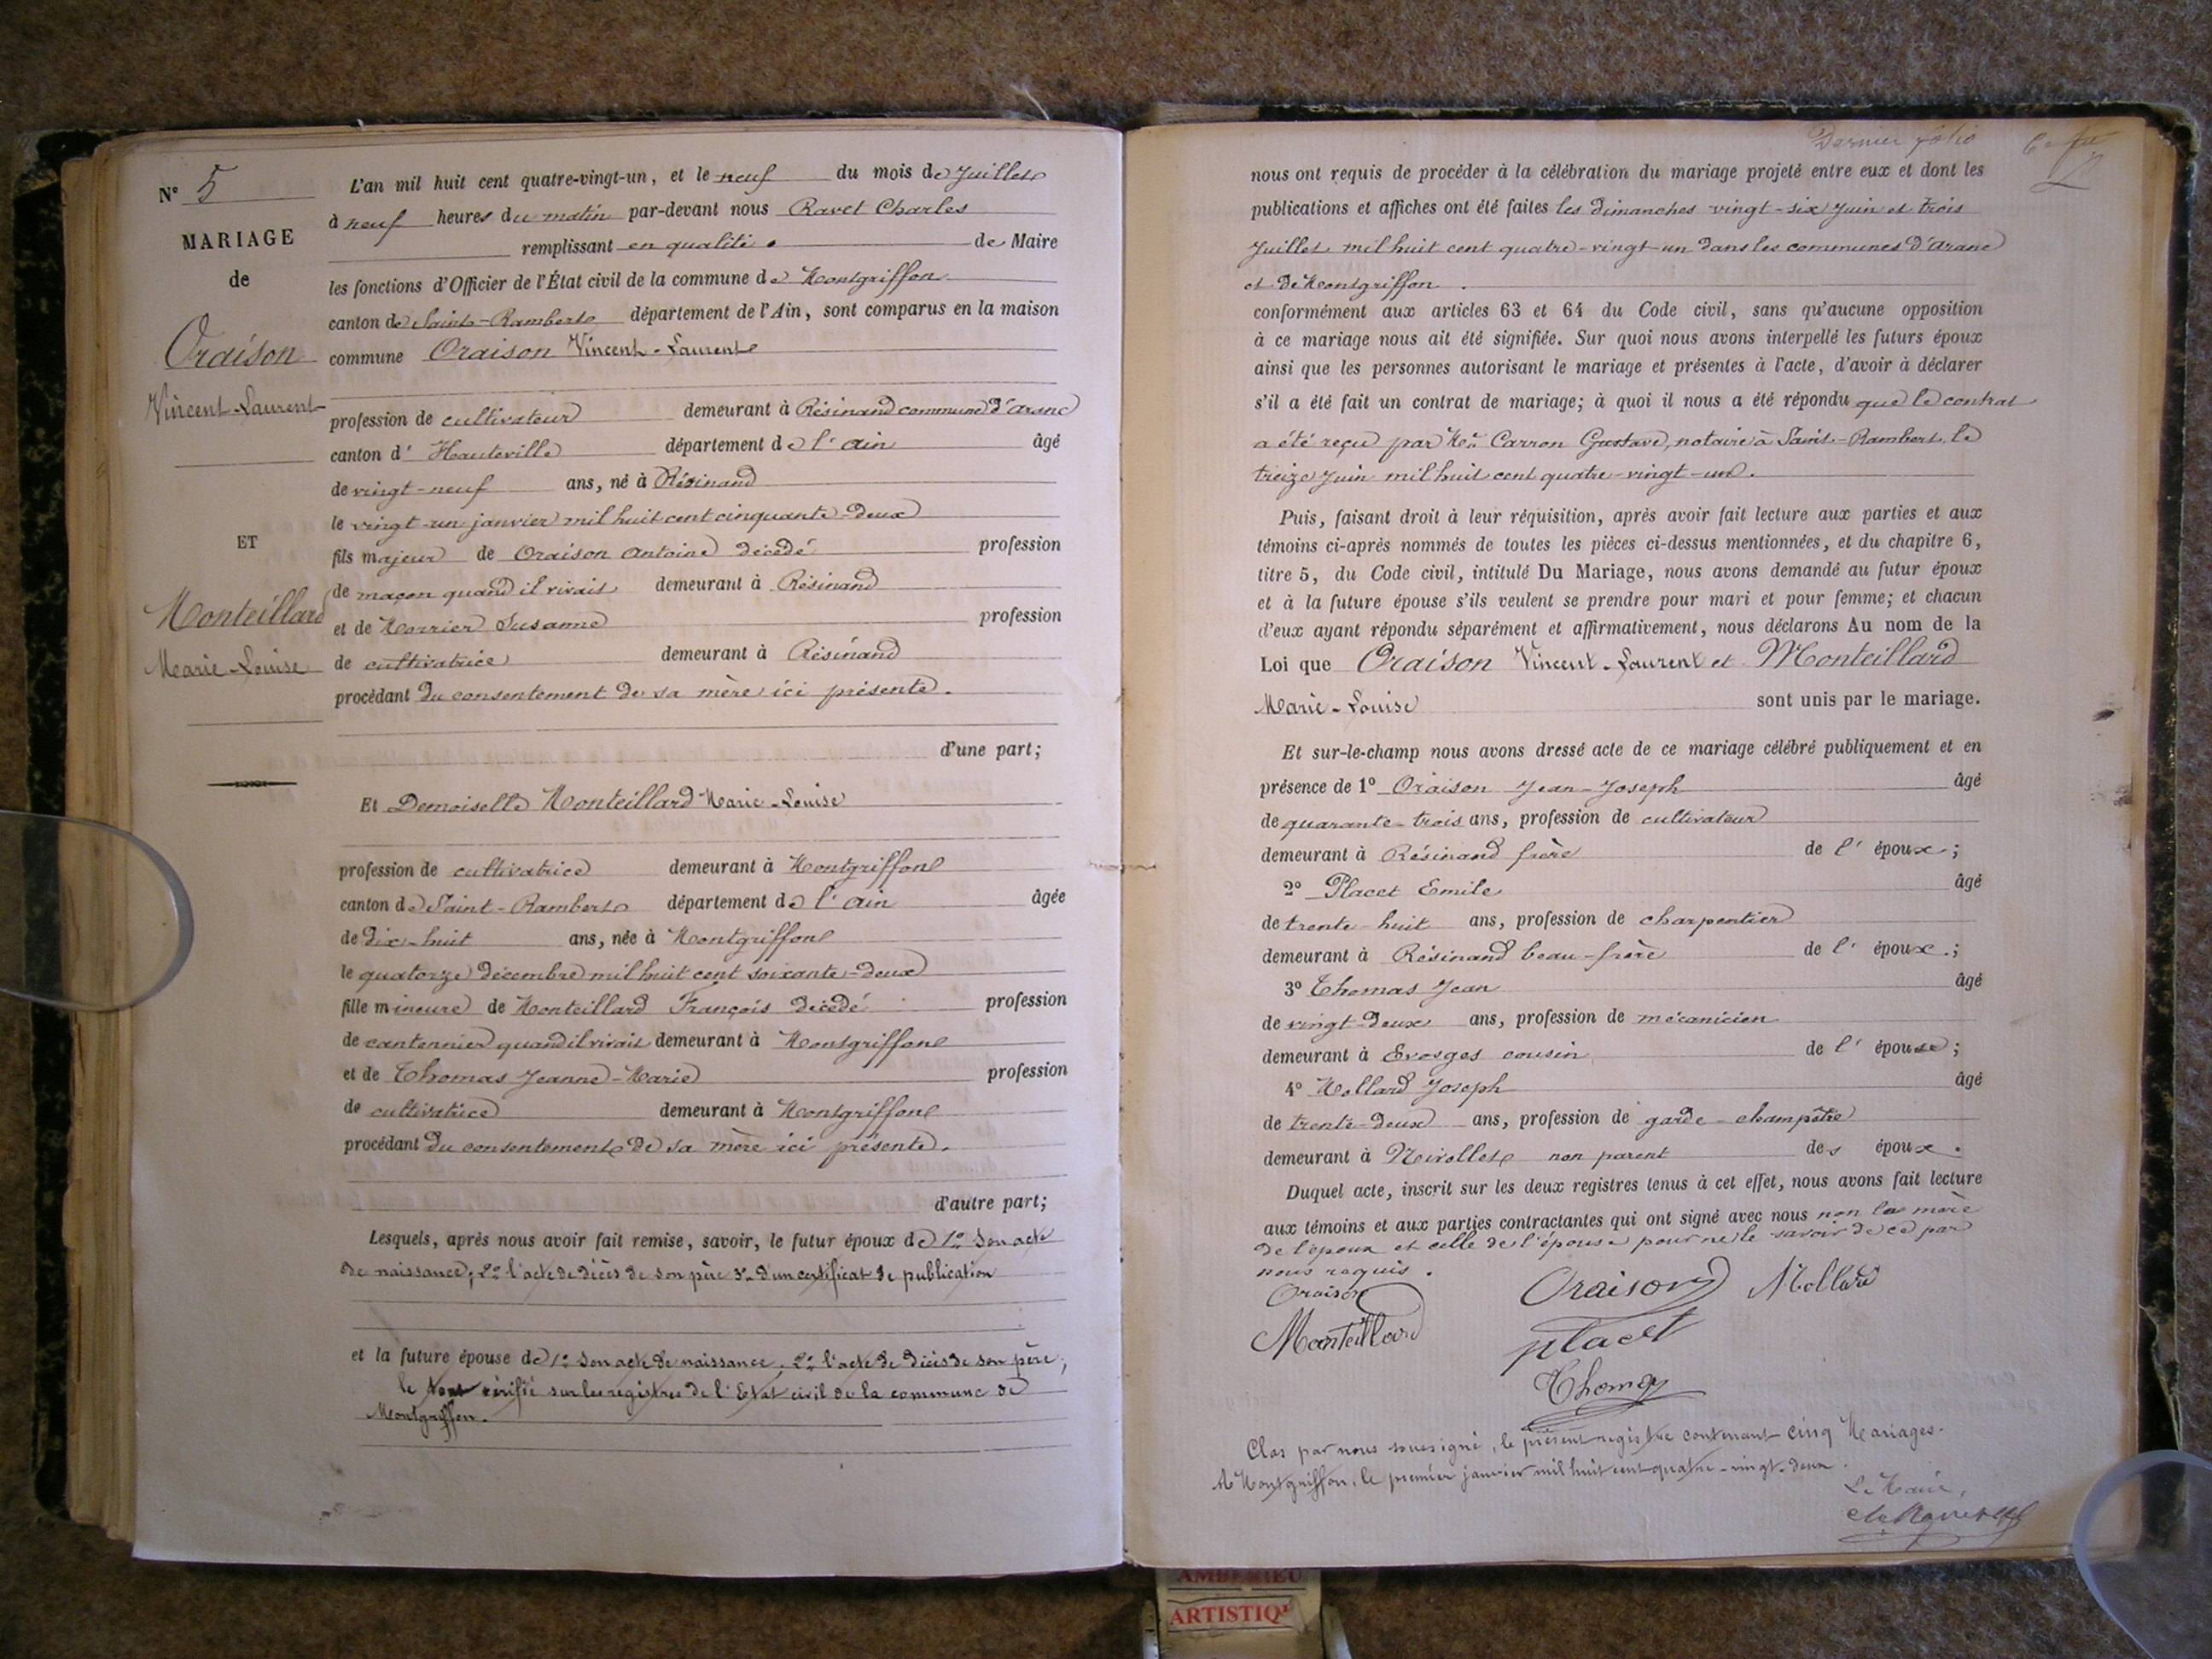 N° 5
MARIAGE
de
Oraison
Vincent-Laurent
ET
Monteillard
Marie-Louise
L'an mil huit cent quatre-vingt-un, et le neuf du mois de Juillet
à neuf heures du matin par-devant nous Ravet Charles
remplissant en qualité de Maire
les fonctions d'Officier de l'État civil de la commune de Montgriffon
canton de Saint-Rambert département de l'Ain, sont comparus en la maison
commune Oraison Vincent-Laurent
profession de cultivateur demeurant à Résinand commune d'Aranc
canton d' Hauteville département de l'ain âgé
de vingt-neuf ans, né à Résinand
le vingt-un janvier mil huit cent cinquante-deux
fils majeur de Oraison Antoine décédé profession
de maçon quand il vivait demeurant à Résinand
et de Morrier Susanne profession
de cultivatrice demeurant à Résinand
procédant du consentement de sa mère ici présente.
d'une part;
Et Demoiselle Monteillard Marie-Louise
profession de cultivatrice demeurant à Montgriffon
canton de Saint-Rambert département de l'ain âgée
de dix-huit ans, née à Montgriffon
le quatorze décembre mil huit cent soixante-deux
fille mineure de Monteillard François décédé profession
de cantonnier quand il vivait demeurant à Montgriffon
et de Thomas Jeanne-Marie profession
de cultivatrice demeurant à Montgriffon
procédant du consentement de sa mère ici présente.
d'autre part;
Lesquels, après nous avoir fait remise, savoir, le futur époux de 1° Son acte
de naissance; 2° l'acte de décès de son père 3° d'un certificat de publication
et la future épouse de 1° Son acte de naissance; 2° l'acte de décès de son père;
le tout vérifié sur les registres de l'Etat civil de la commune de
Montgriffon.
Dernier folio
nous ont requis de procéder à la célébration du mariage projeté entre eux et dont les
publications et affiches ont été faites les dimanches vingt-six Juin et trois
Juillet mil huit cent quatre-vingt-un dans les communes d'Aranc
et de Montgriffon.
conformément aux articles 63 et 64 du Code civil, sans qu'aucune opposition
à ce mariage nous ait été signifiée. Sur quoi nous avons interpellé les futurs époux
ainsi que les personnes autorisant le mariage et présentes à l'acte, d'avoir à déclarer
s'il a été fait un contrat de mariage; à quoi il nous a été répondu que le contrat
a été reçu par Me Carron Gustave, notaire à Saint-Rambert, le
treize Juin mil huit cent quatre-vingt-un.
Puis, faisant droit à leur réquisition, après avoir fait lecture aux parties et aux
témoins ci-après nommés de toutes les pièces ci-dessus mentionnées, et du chapitre 6,
titre 5, du Code civil, intitulé Du Mariage, nous avons demandé au futur époux
et à la future épouse s'ils veulent se prendre pour mari et pour femme; et chacun
d'eux ayant répondu séparément et affirmativement, nous déclarons Au nom de la
Loi que Oraison Vincent-Laurent et Monteillard
Marie-Louise sont unis par le mariage.
Et sur-le-champ nous avons dressé acte de ce mariage célébré publiquement et en
présence de 1° Oraison Jean-Joseph âgé
de quarante-trois ans, profession de cultivateur
demeurant à Résinand frère de l' époux;
2° Placet Emile âgé
de trente-huit ans, profession de charpentier
demeurant à Résinand beau-frère de l' époux;
3° Thomas Jean âgé
de vingt-deux ans, profession de mécanicien
demeurant à Evosges cousin de l' épouse;
4° Mollard Joseph âgé
de trente-deux ans, profession de garde-champêtre
demeurant à Nivollet non parent des époux.
Duquel acte, inscrit sur les deux registres tenus à cet effet, nous avons fait lecture
aux témoins et aux parties contractantes qui ont signé avec nous non la mère
de l'époux et celle de l'épouse pour ne le savoir de ce par
nous requis.
Oraison Oraison Mollard
Monteillard placet
Thomas
Clos par nous soussigné, le présent registre contenant cinq Mariages.
A Montgriffon, le premier janvier mil huit cent quatre-vingt-deux.
Le Maire,
AMBERIEU
ARTISTIQ